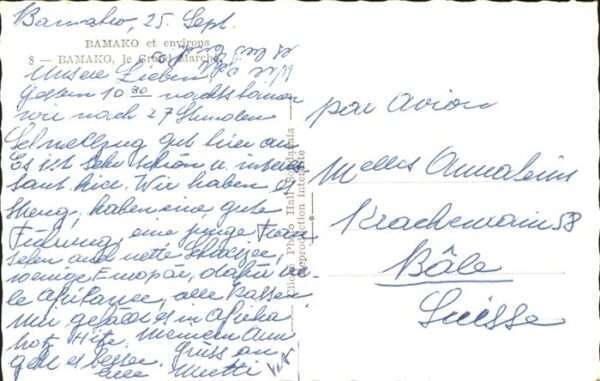 Bamako, 25. Sept.
BAMAKO et environs
8 — BAMAKO, le Grand marché
Unsere Lieben
Gestern 10 30 nachts kamen
wir nach 27 Stunden
Schnellzug gut hier an
Es ist sehr schön u. interes
sant hier. Wir haben es
streng, haben eine gute
Führung, eine junge Fran
sehen und nette
wenige Europäer, dafür
le Afrikaner, alle Rassen
Mir gefällt es in Afrika
trotz Hitze. Meinem Arm
geht es besser. Gruss an
alle Mutti
Clichés Photo
Reproduction interdite
par avion
Melles
Krachenrain 58
Bâle
Suisse